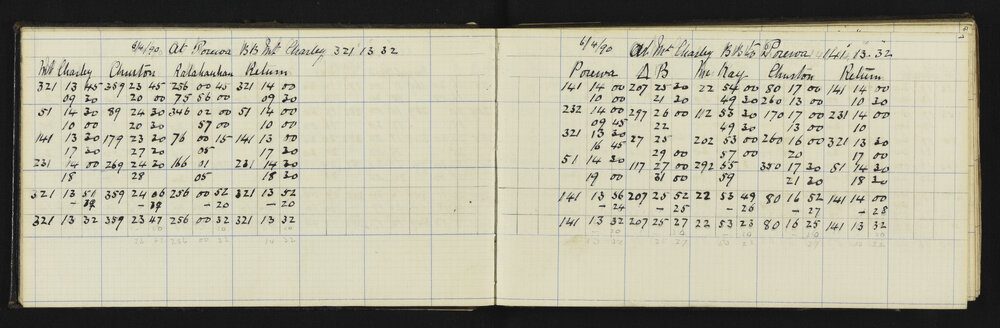 6/4/90 At Porewa BB Mt Charley 321 13 32
Mt Charley Churton Ratahauhau Return
321 13 45 359 23 45 256 00 45 321 14 00
09 30 20 00 75 56 00 09 30
51 14 30 89 24 30 346 02 00 51 14 00
10 00 20 30 57 00 10 00
141 13 30 179 23 30 76 00 15 141 13 00
17 30 27 20 05 17 30
231 14 00 269 24 30 166 01 231 14 30
18 28 05 18 30
321 13 51 359 24 06 256 00 52 321 13 52
- 19 - 19 - 20 - 20
321 13 32 359 23 47 256 00 32 321 13 32
6/4/90 At Mt Charley BB to Porewa 141 13 32
Porewa Δ B Mc Kay Churton Return
141 14 00 207 25 30 22 54 00 80 17 00 141 14 00
10 00 21 30 49 30 260 13 00 10 30
232 14 00 297 26 00 112 53 30 170 17 00 231 14 00
09 45 22 49 30 13 00 10
321 13 30 27 25 202 53 00 260 16 00 321 13 30
16 45 29 00 57 00 20 17 00
51 14 30 117 27 00 292 55 350 17 30 51 14 30
19 00 31 00 59 21 30 18 30
141 13 56 207 25 52 22 53 49 80 16 52 141 14 00
- 24 - 25 - 26 - 27 - 28
141 13 32 207 25 27 22 53 23 80 16 25 141 13 32